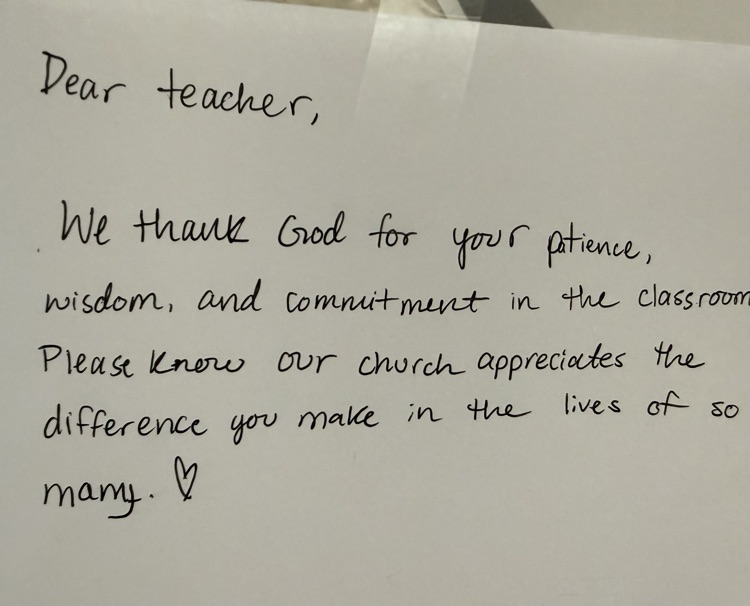 Dear teacher,
We thank God for your patience,
wisdom, and commitment in the classroom
Please know our church appreciates the
difference you make in the lives of so
many. ♡